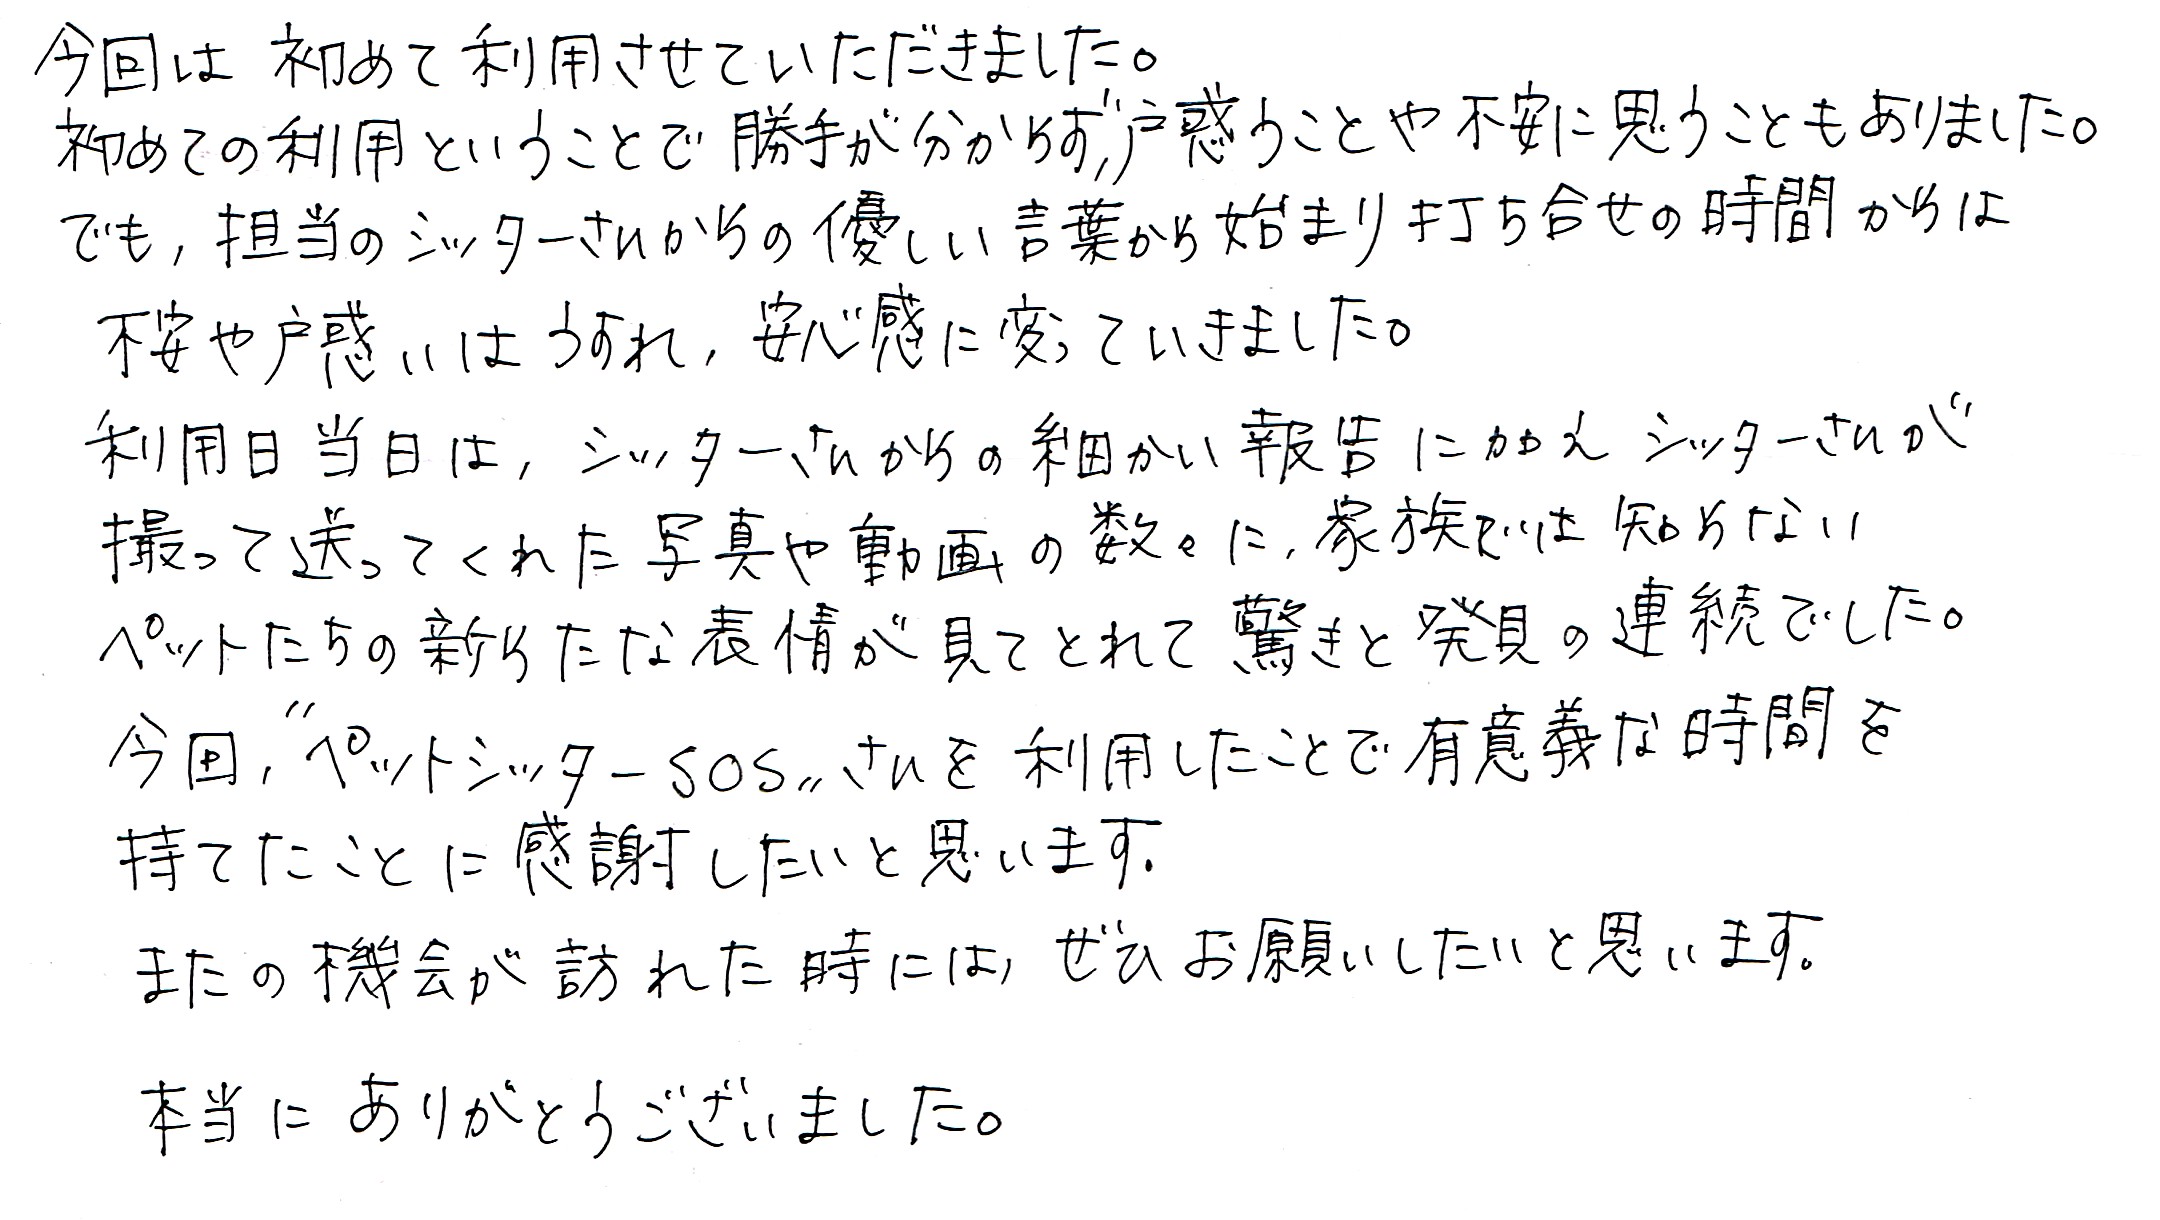 今回は 初めて利用させていただきました。
初めての利用ということで勝手が分からず、戸惑うことや不安に思うこともありました。
でも,担当のシッターさんからの優しい言葉から始まり打ち合せの時間からは
不安や戸惑いはうすれ,安心感に変っていきました。
利用日当日は,シッターさんからの細かい報告にかえ シッターさんが
撮って送ってくれた写真や動画の数々に,家族では知らない
ペットたちの新らたな表情が見てとれて驚きと発見の連続でした。
今回,“ペットシッターSOS„さんを利用したことで有意義な時間を
持てたことに感謝したいと思います.
またの機会が訪れた時には,ぜひお願いしたいと思います。
本当に ありがとうございました。